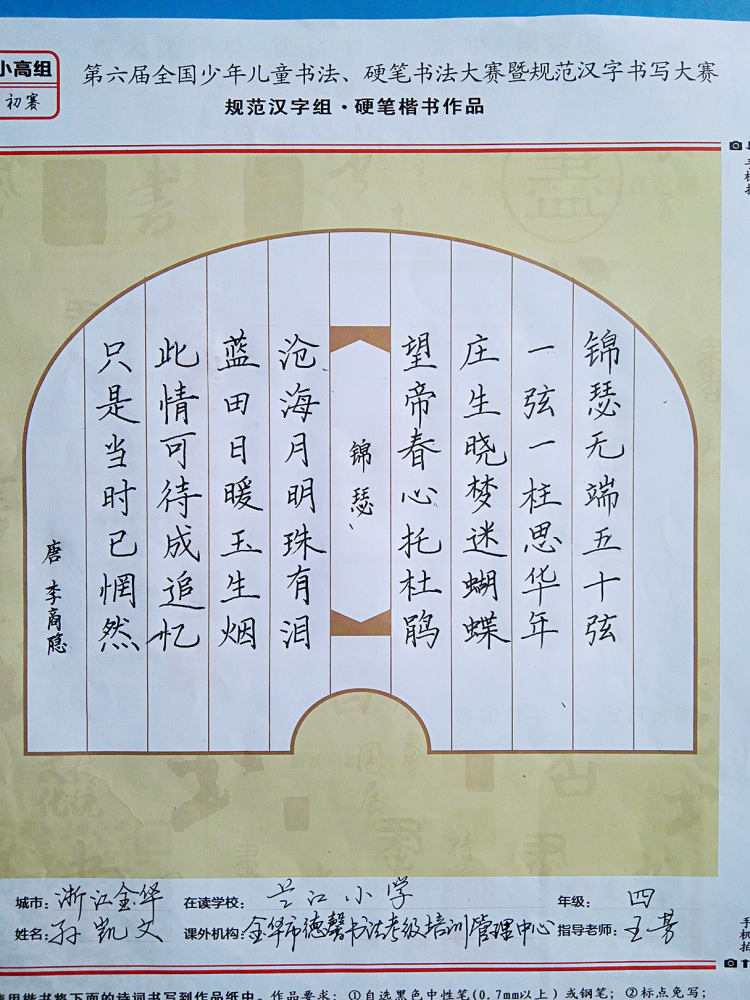 小高组
初赛
第六届全国少年儿童书法、硬笔书法大赛暨规范汉字书写大赛
规范汉字组·硬笔楷书作品
锦瑟无端五十弦
一弦一柱思华年
庄生晓梦迷蝴蝶
望帝春心托杜鹃
锦瑟
沧海月明珠有泪
蓝田日暖玉生烟
此情可待成追忆
只是当时已惘然
唐 李商隐
城市: 浙江金华 在读学校: 兰江小学 年级: 四
姓名: 孙凯文 课外机构: 金华市德馨书法考级培训管理中心 指导老师: 王芳
用楷书将下面的诗词书写到作品纸中。作品要求: ①自选黑色中性笔(0.7mm以上)或钢笔; ②标点免写;